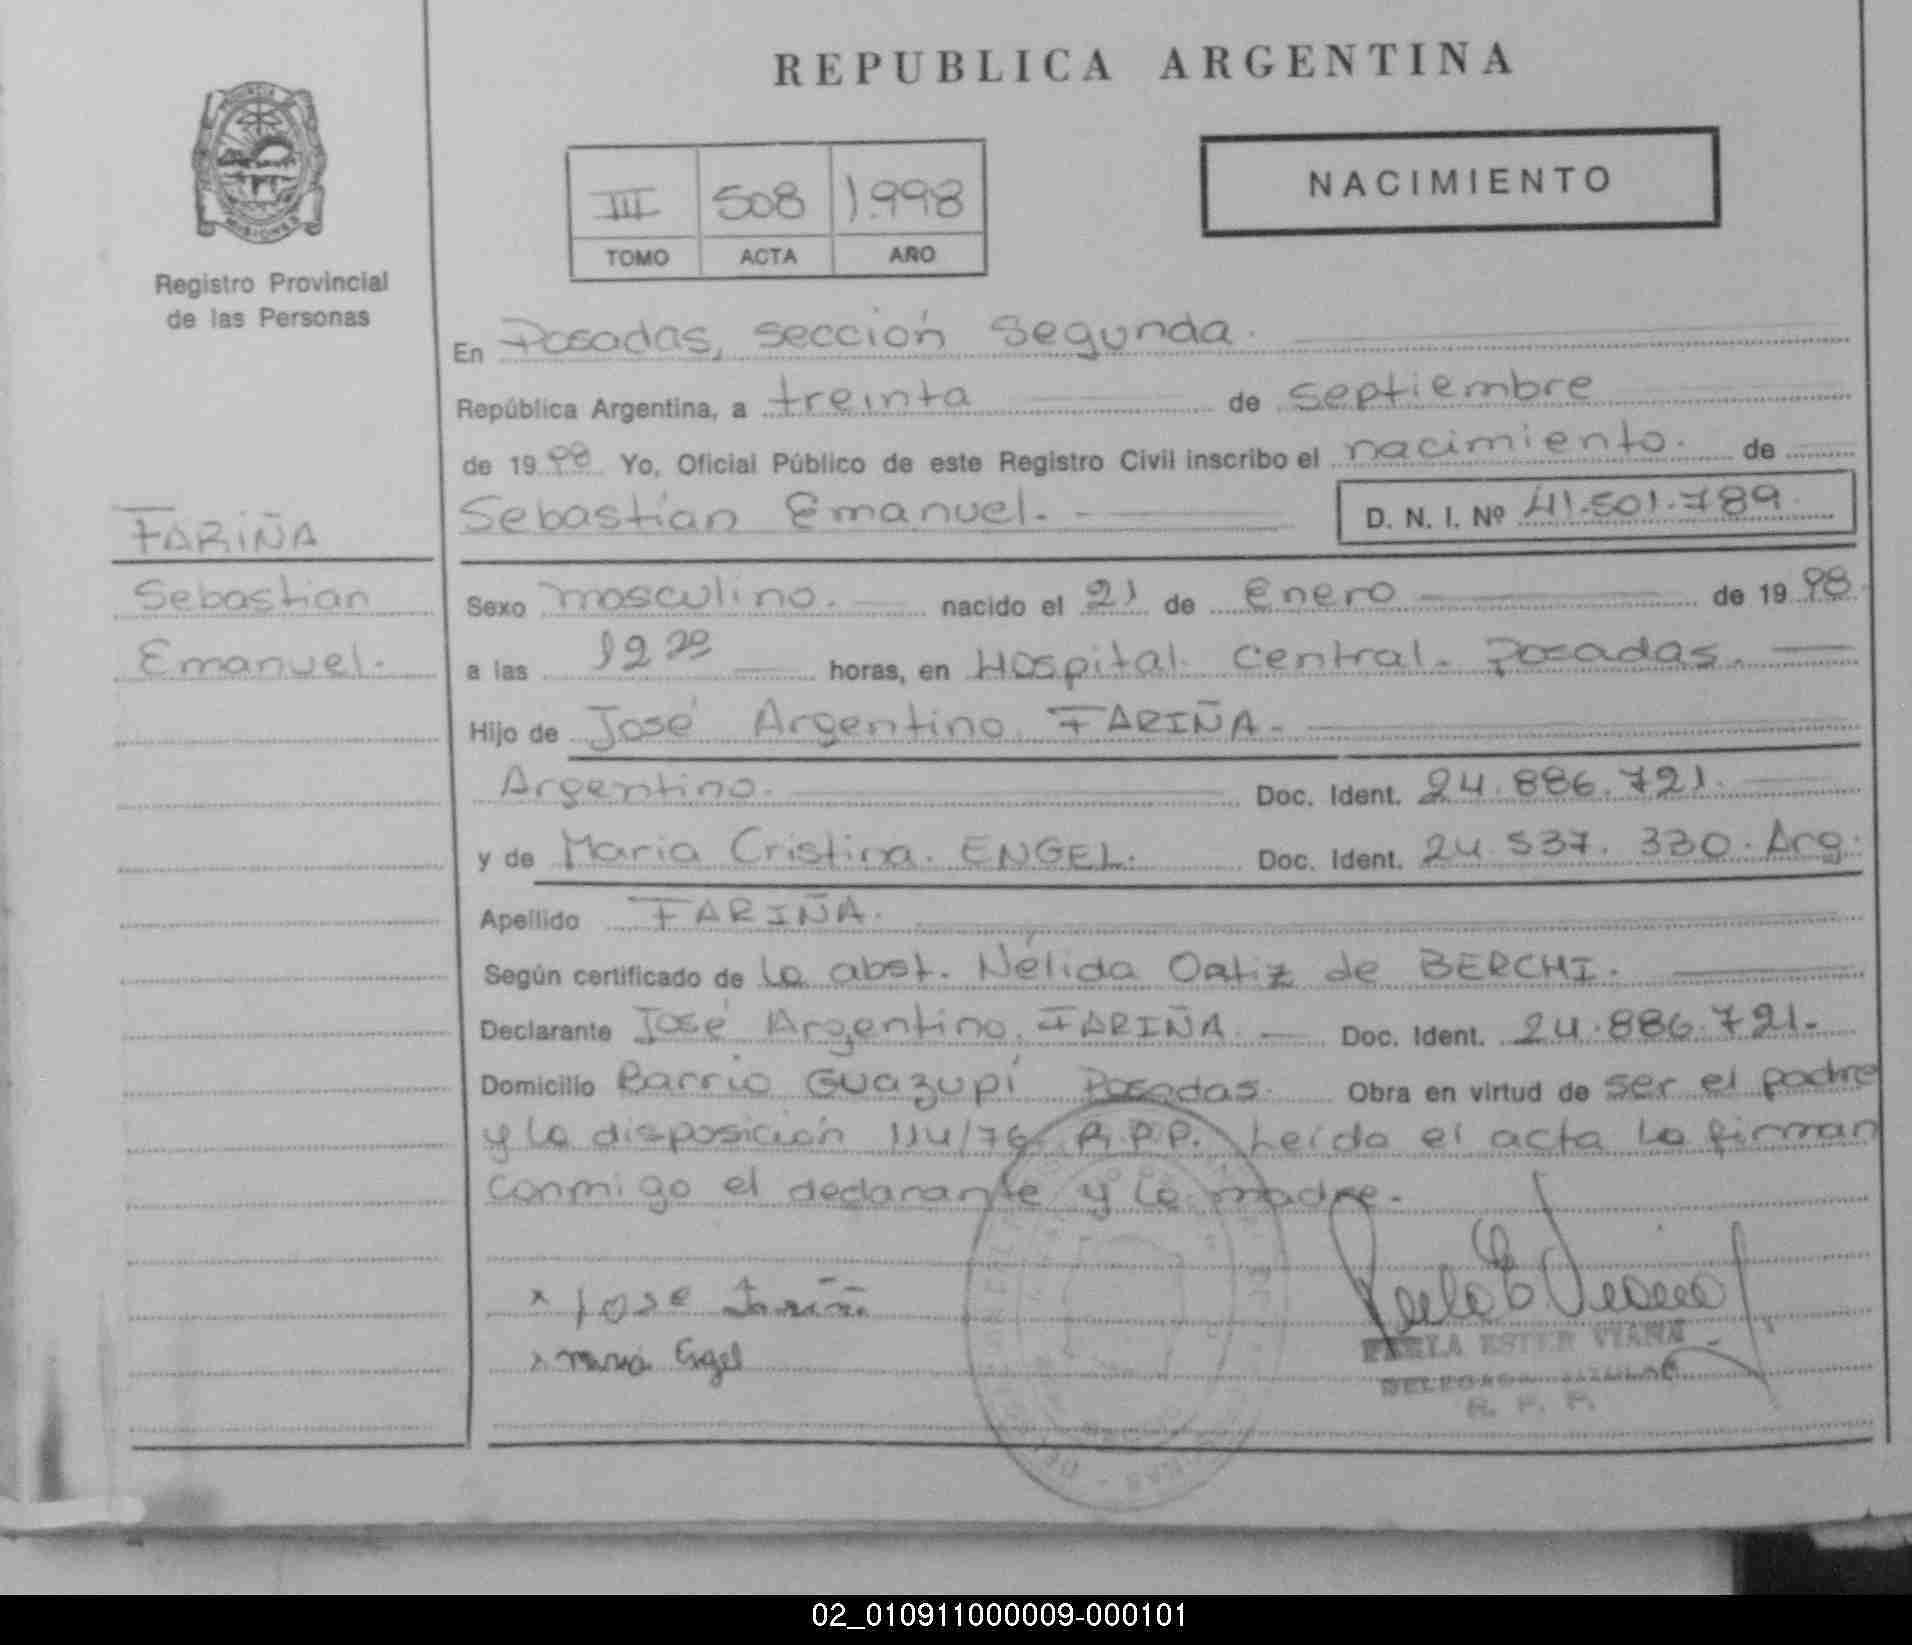 REPUBLICA ARGENTINA
III 508 1.998
TOMO ACTA AÑO
NACIMIENTO
Registro Provincial
de las Personas
En Posadas, sección Segunda.
República Argentina, a treinta de septiembre
de 19 98 Yo, Oficial Público de este Registro Civil inscribo el nacimiento. de
Sebastián Emanuel. D. N. I. Nº 41.501.789.
FARIÑA
Sebastián
Emanuel.
Sexo masculino. nacido el 21 de Enero de 19 98.
a las horas, en Hospital Central. Posadas.
Hijo de José Argentino FARIÑA.
Argentino. Doc. Ident. 24.886.721.
y de Maria Cristina. ENGEL. Doc. Ident. 24.537.330. Arg.
Apellido FARIÑA.
Según certificado de la obst. Nélida Ortiz de BERCHI.
Declarante José Argentino FARIÑA. Doc. Ident. 24.886.721.
Domicilio Barrio Guazupí Posadas. Obra en virtud de ser el padre
y la disposición 114/76 R.P.P. Leída el acta la firman
conmigo el declarante y la madre.
x Jose Fariña
x maria Engel
PERLA ESTER VIANA
DELEGADA TITULAR
R. P. P.
02_010911000009-000101